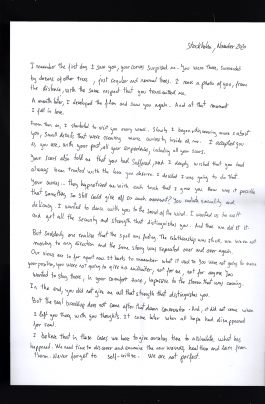 Stockholm, November 20
I remember the first day I saw you, your curves surprised me. You were there, surrounded
by dozens of other trees, just regular and normal trees. I took a photo of you, from
the distance, with the same respect that you transmitted me.
A month later, I developed the film and saw you again. And at that moment
I fell in love.
From then on, I started to visit you every week. Slowly I began discovering more about
you, small details that were creating more curiosity inside of me. I accepted you
as you are, with your past, all your experiences, including all your scars.
Your scars also told me that you had suffered, and I deeply wished that you had
always been treated with the love you deserve. I decided I was going to do that.
Your curves - They hypnotised me with each look that I gave you. How was it possible
that something so still could give off so much movement? You exhale sensuality and
delicacy. I wanted to dance with you to the sound of the wind. I wanted us to melt
and get all the security and strength that distinguishes you. And then we did it.
But suddenly one realises that the spell was fading. The relationship was stuck, we were not
moving to any direction and the same story was repeated over and over again.
Our views so far apart now. It hurts to remember what it used to be. You were not going to move
your position, you were not going to give me neither, not for me, not for anyone. You
wanted to stay there, in your comfort zone, impassive to the storm that was coming.
In the end, you did not give me all that strength that distinguishes you.
But the real breakup does not come after that dawn conversation. And, it did not come when
I left you there with my thoughts. It came later when all hope had disappeared
for real.
I believe that in these cases we have to give ourselves time to assimilate what has
happened. We need time to discover and examine the new wounds, heal them and learn from
them. Never forget to self-write. We are not perfect.